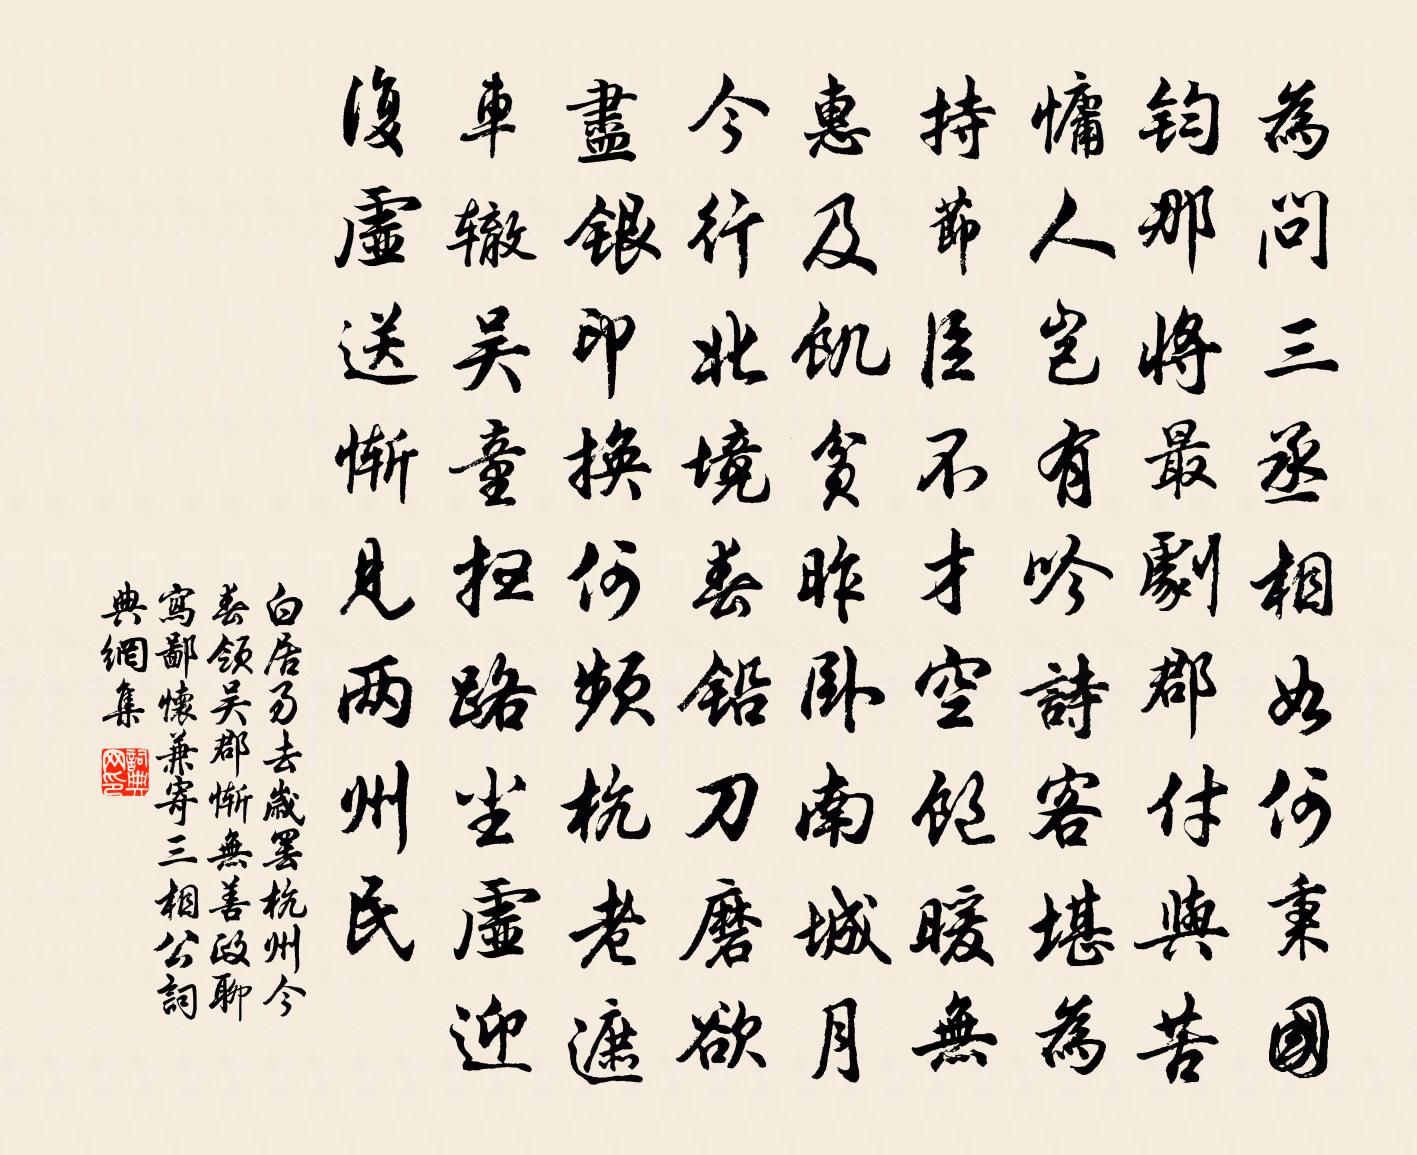 為問三丞相如何秉國
鈞那將最劇郡付與苦
慵人豈有吟詩客堪為
持節臣不才空飽暖無
惠及飢貧昨臥南城月
今行北境春鉛刀磨欲
盡銀印換何頻杭老遮
車轍吴童掃路尘虛迎
復虛送慚見兩州民
白居易去歲罷杭州今
春領吴郡慚無善政聊
寫鄙懷兼寄三相公詞
典網集
詞典网印